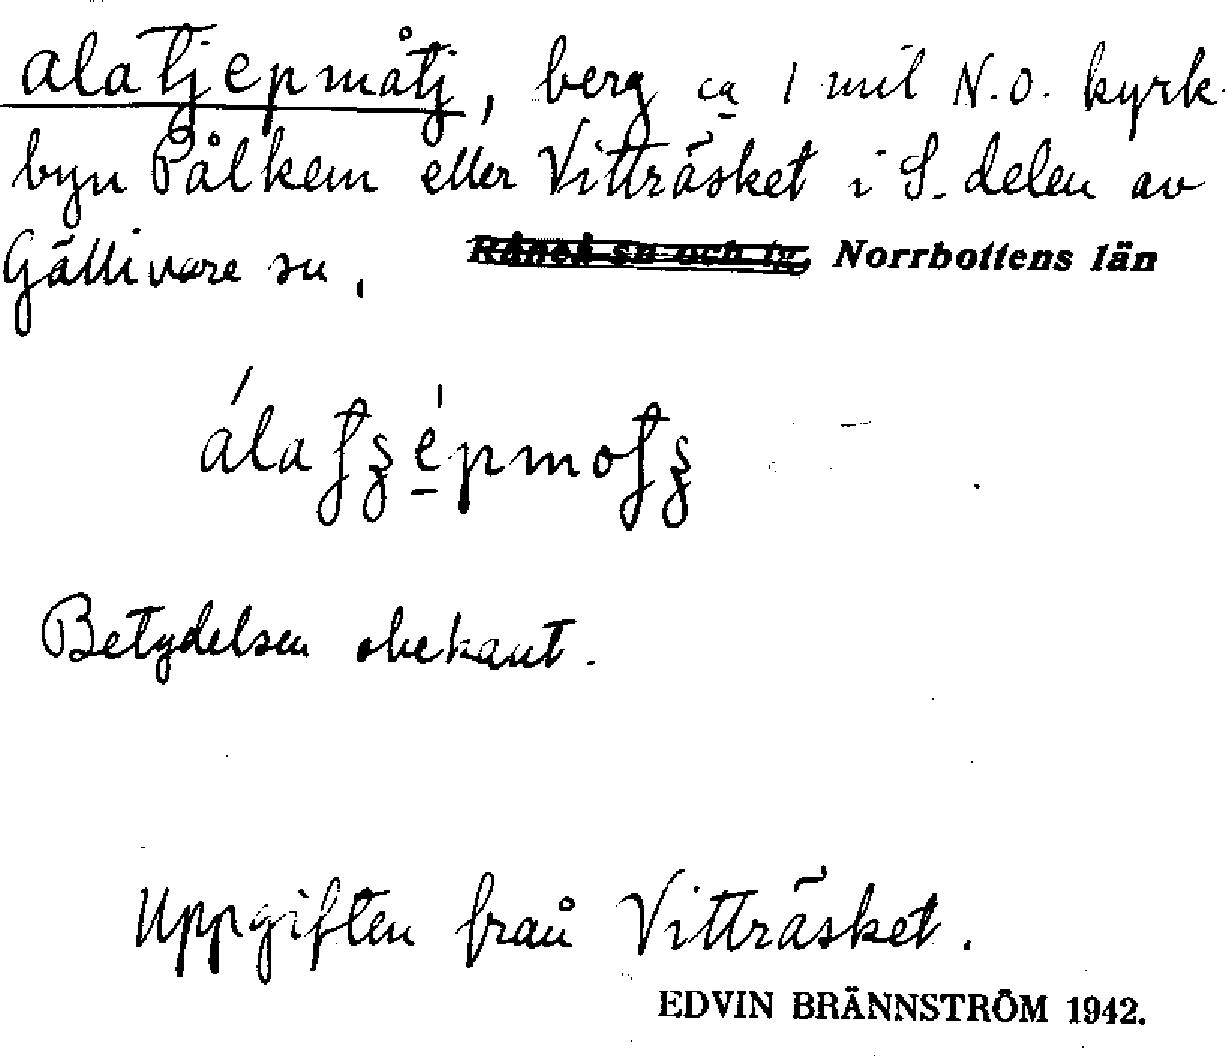 alatjepmåtj, berg ca 1 mil N.O. kyrk-
byn Pålkem eller Vitträsket i S. delen av
Gällivare sn, Råneå sn och tg, Norrbottens län
Betydelsen obekant.
Uppgiften från Vitträsket.
EDVIN BRÄNNSTRÖM 1942.